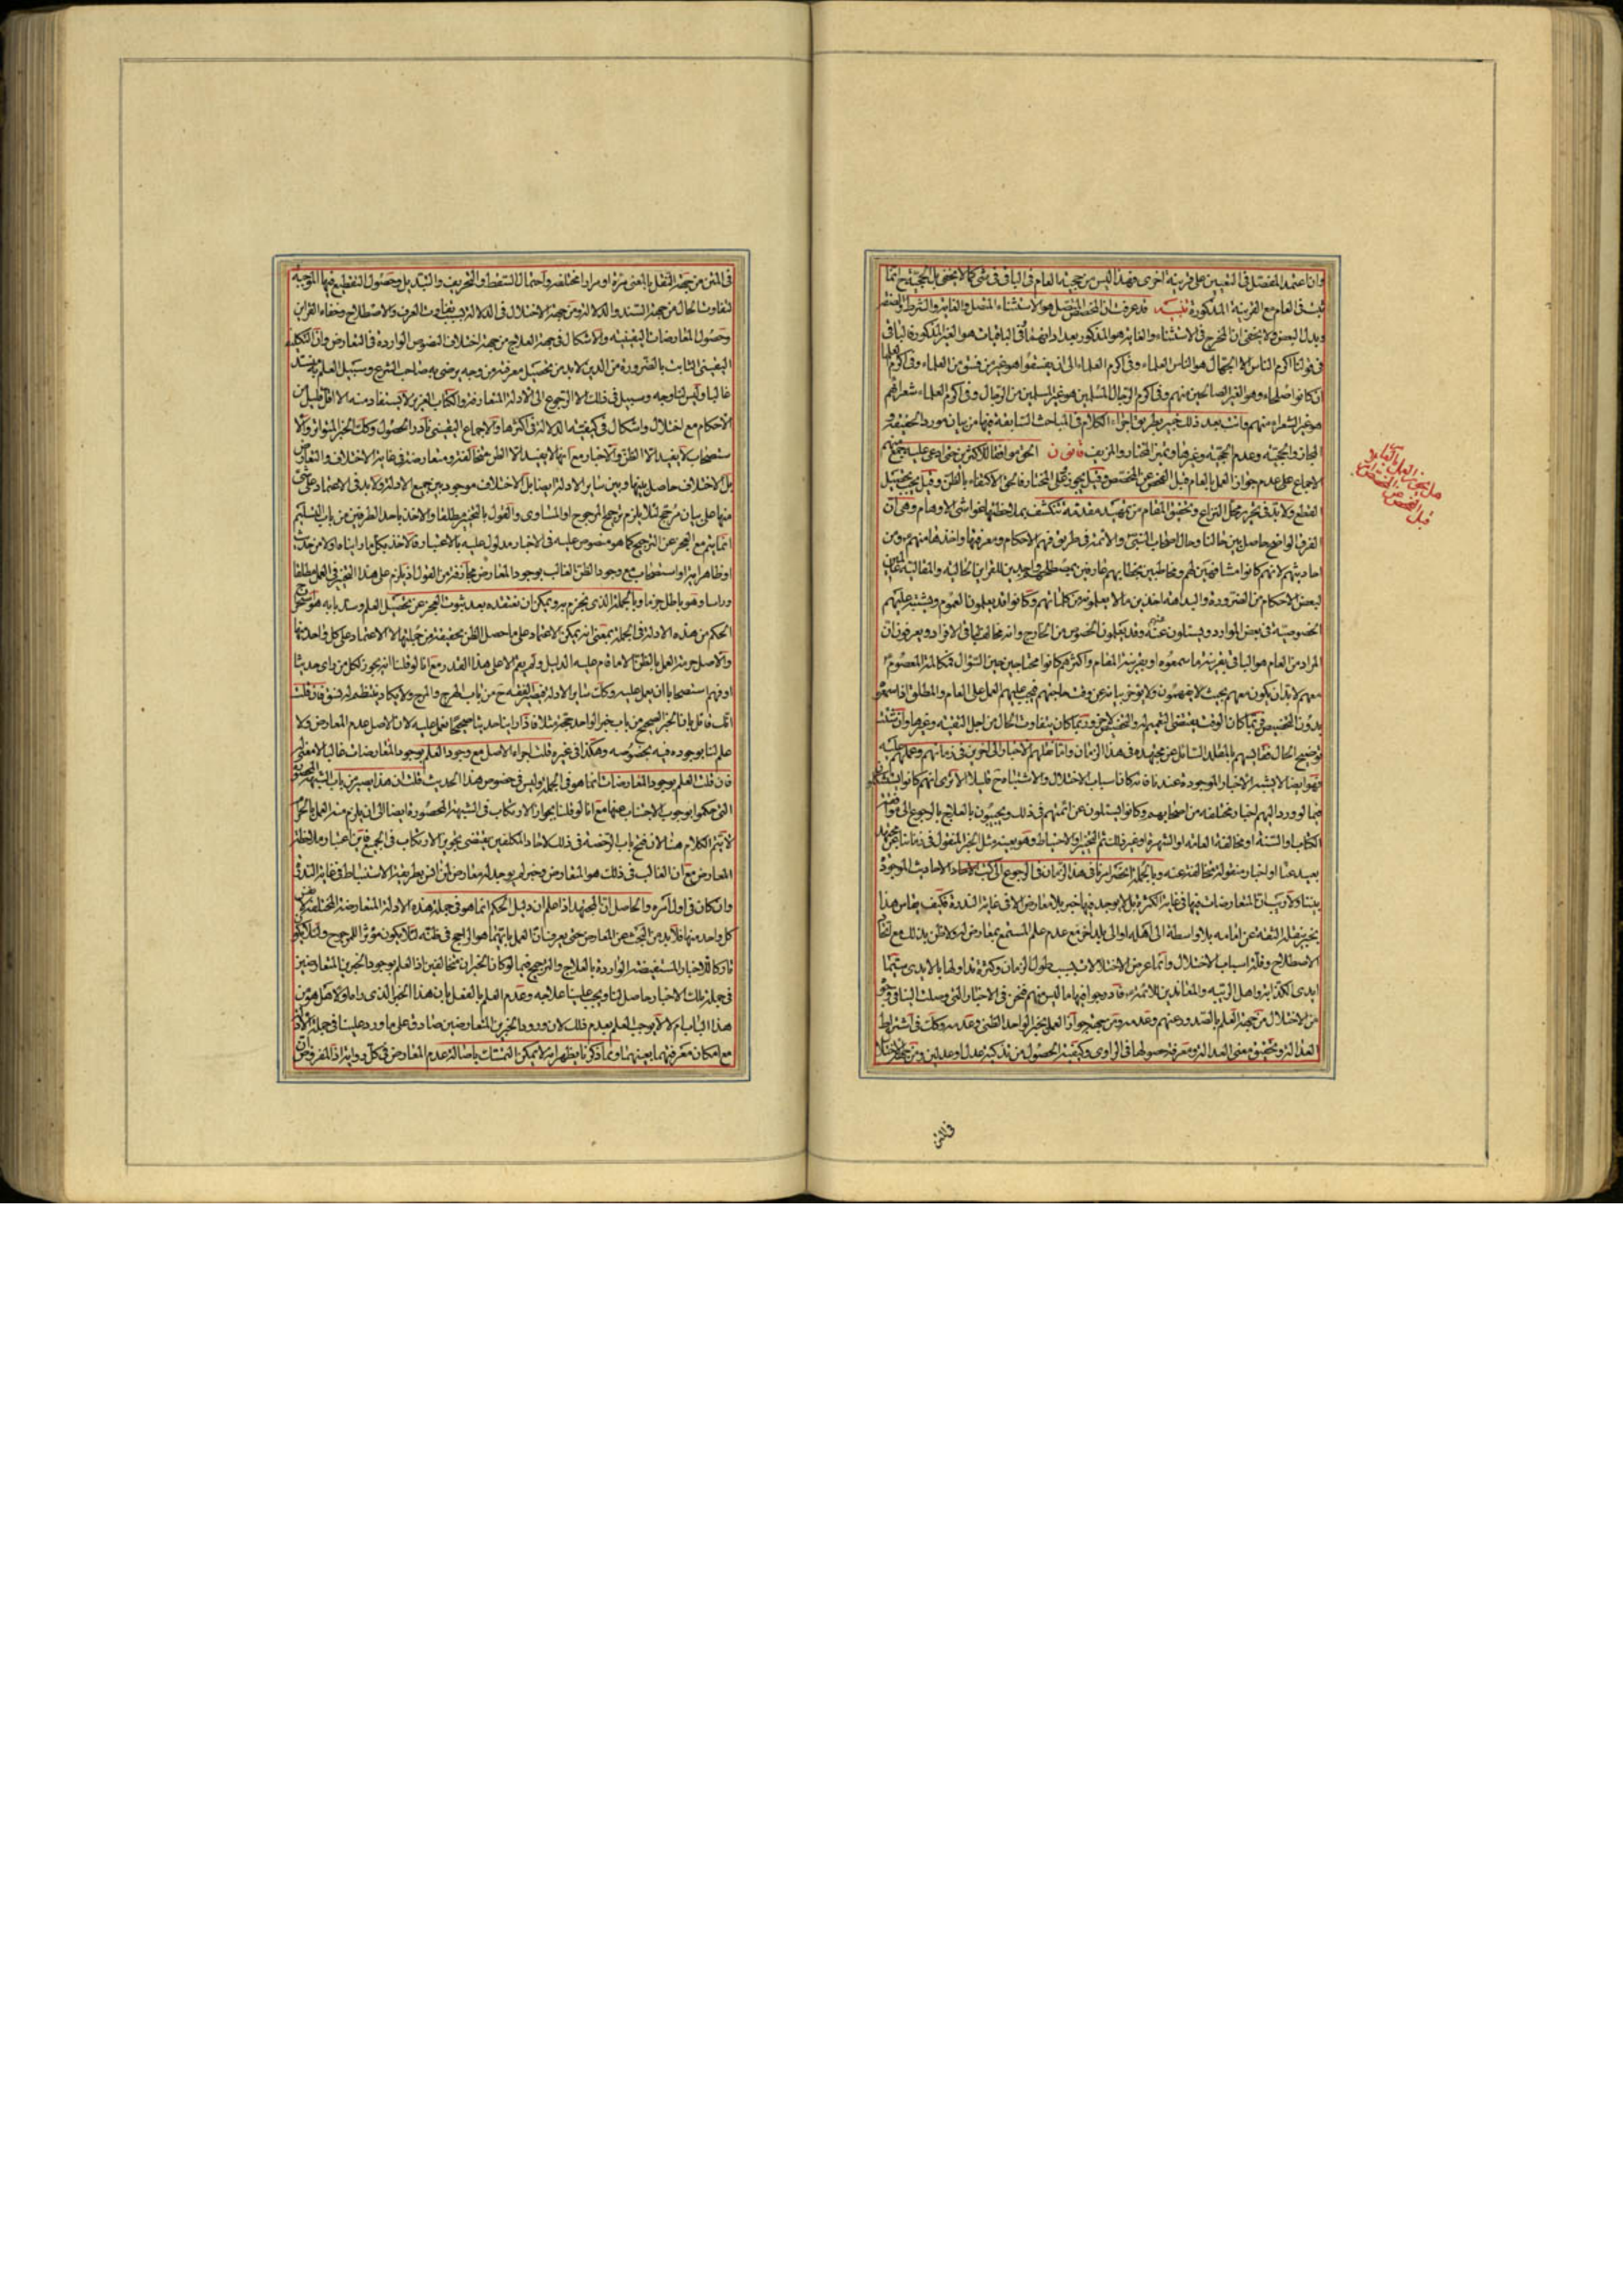 وان اعتمد المفصل في التعيين على قرينة اخرى فهذا ليس من حجية العام في الباقي في شئ كما لا يخفى بل الحجية ح انما
ثبت في العام مع القرينة المذكورة تنبيه قد عرفت ان المخصص المتصل هو الاستثناء المتصل والغاية والشرط والصفة
وبدل البعض ولا يخفى ان المخرج في الاستثناء والغاية هو المذكور بعد اداتهما وفي الباقيات هو الغير المذكورة فالباقي
في قولنا اكرم الناس الا الجهال هو الناس العلماء وفي اكرم العلماء الى ان يفسقوا هو غير من فسق من العلماء وفي اكرم العلماء
ان كانوا صلحاء وهو الغير الصالحين منهم وفي اكرم الرجال المسلمين هو غير المسلمين من الرجال وفي اكرم العلماء شعرائهم
هو غير الشعراء منهم وانت بعد ذلك خبير بطريق اجراء الكلام في المباحث السابقة فيها من بيان مورد الحقيقة و
المجاز والحجية وعدم الحجية وغيرها وتميز المختار والمزيف قانون الحق موافقا للاكثرين حتى ادعى عليه جمع منهم
الاجماع على عدم جواز العمل بالعام قبل الفحص عن المخصص وقيل يجوز وعلى المختار فالحق الاكتفاء بالظن وقيل يجب تحصيل
القطع ولا بد في تحرير محل النزاع وتحقيق المقام من تمهيد مقدمة تنكشف بملاحظتها غواشي الاوهام وهي ان
الفرق الواضح حاصل بين حالنا وحال اصحاب النبي والائمة في طريق فهم الاحكام ومعرفتها واخذها منهم ومن
احاديثهم لانهم كانوا مشافهين لهم ومخاطبين بخطابهم عارفين بمصطلحهم واجدين للقراين الحالية والمقالية عالمين
لبعض الاحكام من الضرورة والبداهة اخذين ما لا يعلمونه من كلماتهم وكانوا قد يعلمون العموم ويشتبه عليهم
الخصوصية في بعض الموارد ويسئلون عنه وقد يعلمون الخصوص من الخارج وانه مخالف لباقي الافراد ويعرفون ان
المراد من العام هو الباقي بقرينة ما سمعوه او بقرينة المقام واكثرهم كانوا محتاجين حين السؤال فمكالمة المعصوم
معهم لا بد ان يكون معهم بحيث لا يفهمون ولا يؤخر بيانه عن وقت حاجتهم فيجب عليهم العمل على العام والمطلق اذا سمعوا
بدون التخصيص وربما كان الوقت يقتضي التعميم لهم والتخصيص لاخر وربما كان يتفاوت الحال من اجل التقية وغيرها وان شئت
توضيح الحال فقايسهم بالمقلد السائل عن مجتهده في هذا الزمان واما نقلهم الاخبار الى اخرين في زمانهم وعملهم عليه
فهو ايضا لا يشبه الاخبار الموجودة عندنا فانه كان اسباب الاختلال والاشتباه ح قليلا الا ترى انهم كانوا يستشكلون
فيما لو ورد اليهم اخبار مختلفة من اصحابهم وكانوا يسئلون عن ائمتهم في ذلك ويجيبون بالعلاج بالرجوع الى موافقة
الكتاب او السنة او مخالفة العامة او الشهرة او غير ذلك ثم التخيير او الاحتياط وهو بعينه مثل الخبر المنقول في زماننا عن مجتهد
بعيد عنا او اخبار منقولة مخالفة عنه وبالجملة انحصر امرنا في هذا الزمان في الرجوع الى كتب الاحاديث الموجودة
بيننا ولا ريب ان المعارضات فيها في غاية الكثرة بل لا يوجد فيها خبر بلا معارض الا في غاية الندرة فكيف يقاس هذا
بخبر ينقله الثقة عن امامه بلا واسطة الى اهله او الى بلد اخر مع عدم علم المستمع بمعارض له ولا ظن بذلك مع اتحاد
الاصطلاح وقلة اسباب الاختلال وانما عرض الاختلالات بسبب طول الزمان وكثرة تداولها بالايدي سيما
ايدي الكذابة واهل الريبة والمعاندين للائمة فادرجوا فيها ما ليس منهم فنحن في الاخبار التي وصلت الينا في وجوه
من الاختلال من جهة العلم بالصدور عنهم وعدمه ومن جهة جواز العمل بخبر الواحد الظني وعدمه وكك في اشتراط
العدالة وتحقيق معنى العدالة ومعرفة حصولها في الراوي وكيفية الحصول من تزكية عدل او عدلين ومن جهة الاختلال
هل يجوز العمل بالعام
قبل الفحص عن المخصص
في المتن
في المتن من جهة النقل بالمعنى مرة او مرارا مختلفة واحتمال السقط والتحريف والتبديل وحصول التقطيع فيها الموجبة
لتفاوت الحال من جهة السند والدلالة ومن جهة الاختلال في الدلالة بسبب تفاوت العرف والاصطلاح وخفاء القراين
وحصول المعارضات اليقينية والاشكال في جهة العلاج من جهة اختلاف النصوص الواردة في التعارض وان التكليف
اليقيني الثابت بالضرورة من الدين لا بد من تحصيل معرفته من وجه يرضى به صاحب الشرع وسبيل العلم به منسد
غالبا وليس لنا وجه وسبيل في ذلك الا الرجوع الى الادلة المتعارفة والكتاب العزيز لا يستفاد منه الا اقل قليل من
الاحكام مع اختلال واشكال في كيفية الدلالة في اكثرها والاجماع اليقيني نادر الحصول وكك الخبر المتواتر والا
ستصحاب لا يفيد الا الظن والاخبار مع انها لا يفيد الا الظن متخالفة ومتعارضة في غاية الاختلاف والتعارض
بل الاختلاف حاصل بينها وبين ساير الادلة ايضا بل الاختلاف موجود بين جميع الادلة ولا بد في الاعتماد على شئ
منها على بيان مرجح لئلا يلزم ترجيح المرجوح او المساوي والقول بالتخيير مطلقا والاخذ باحد الطرفين من باب التسليم
انما يتم مع العجز عن الترجيح كما هو منصوص عليه في الاخبار مدلول عليه بالاعتبار فالاخذ بكل ما راينا اولا من حديث
او ظاهر اية او استصحاب مع وجود الظن الغالب بوجود المعارض مجازفة من القول اذ يلزم على هذا التخيير في العمل مطلقا
وراسا وهو باطل جزما وبالجملة الذي نجزم به ويمكن ان نعتقده بعد ثبوت العجز عن تحصيل العلم وسد بابه هو استخراج
الحكم من هذه الادلة في الجملة بمعنى انه يمكن الاعتماد على ما حصل الظن بحقيقته من جملتها لا الاعتماد على كل واحد منها
والاصل حرمة العمل بالظن الا ما قام عليه الدليل ولم يقم الا على هذا القدر مع انا لو قلنا انه يجوز لكل من راى حديثا
او فهم استصحابا ان يعمل عليه وكك ساير الادلة يصير الفقه ح من باب الهرج والمرج ولا يكاد ينتظم له نسق فان قلت
انك قائل بان الخبر الصحيح من باب خبر الواحد حجة مثلا فاذا راينا حديثا صحيحا نعمل عليه لان الاصل عدم المعارض ولا
علم لنا بوجوده فيه بخصوصه وهكذا في غيره قلت اجراء الاصل مع وجود العلم بوجود المعارضات غالبا لا معنى له
فان قلت العلم بوجود المعارضات انما هو في الجملة وليس في خصوص هذا الحديث قلت ان هذا يصير من باب الشبهة المحصورة
التي حكموا بوجوب الاجتناب عنها مع انا لو قلنا بجواز الارتكاب في الشبهة المحصورة ايضا الى ان يلزم منه العمل بالحرام
لا يتم الكلام هنا لان فتح باب الرخصة في ذلك لاحاد المكلفين يقتضي تجويز الارتكاب في الجميع فتبين اعتبار ملاحظة
المعارض مع ان الغالب في ذلك هو المعارض وخبر لم يوجد له معارض من افق بطريقة الاستنباط في غاية الندرة
وان كان في اول امره والحاصل ان المجتهد اذا علم ان دليل الحكم انما هو في جملة هذه الادلة المتعارضة المختلفة لا
كل واحد منها فلا بد من البحث عن المعارض حتى يعرف ان العمل بايهما هو الراجح في ظنه لئلا يكون مؤثرا للمرجوح ولئلا يكون
تاركا للاخبار المستفيضة الواردة بالعلاج والترجيح فيما لو كان الخبران متخالفين اذ العلم بوجود الخبرين المتعارضين
في جملة تلك الاخبار حاصل لنا ويجب علينا علاجه وعدم العلم بالفعل بان هذا الخبر الذي راه اولا هل هو من
هذا الباب ام لا لا يوجب العلم بعدم ذلك لان ورود الخبرين المتعارضين صادق على ما ورد علينا في جملة الاخبار
مع امكان معرفتهما بعينهما ومما ذكرنا يظهر انه لا يمكن التمسك باصالة عدم المعارض في كل رواية اذ المفروض ان